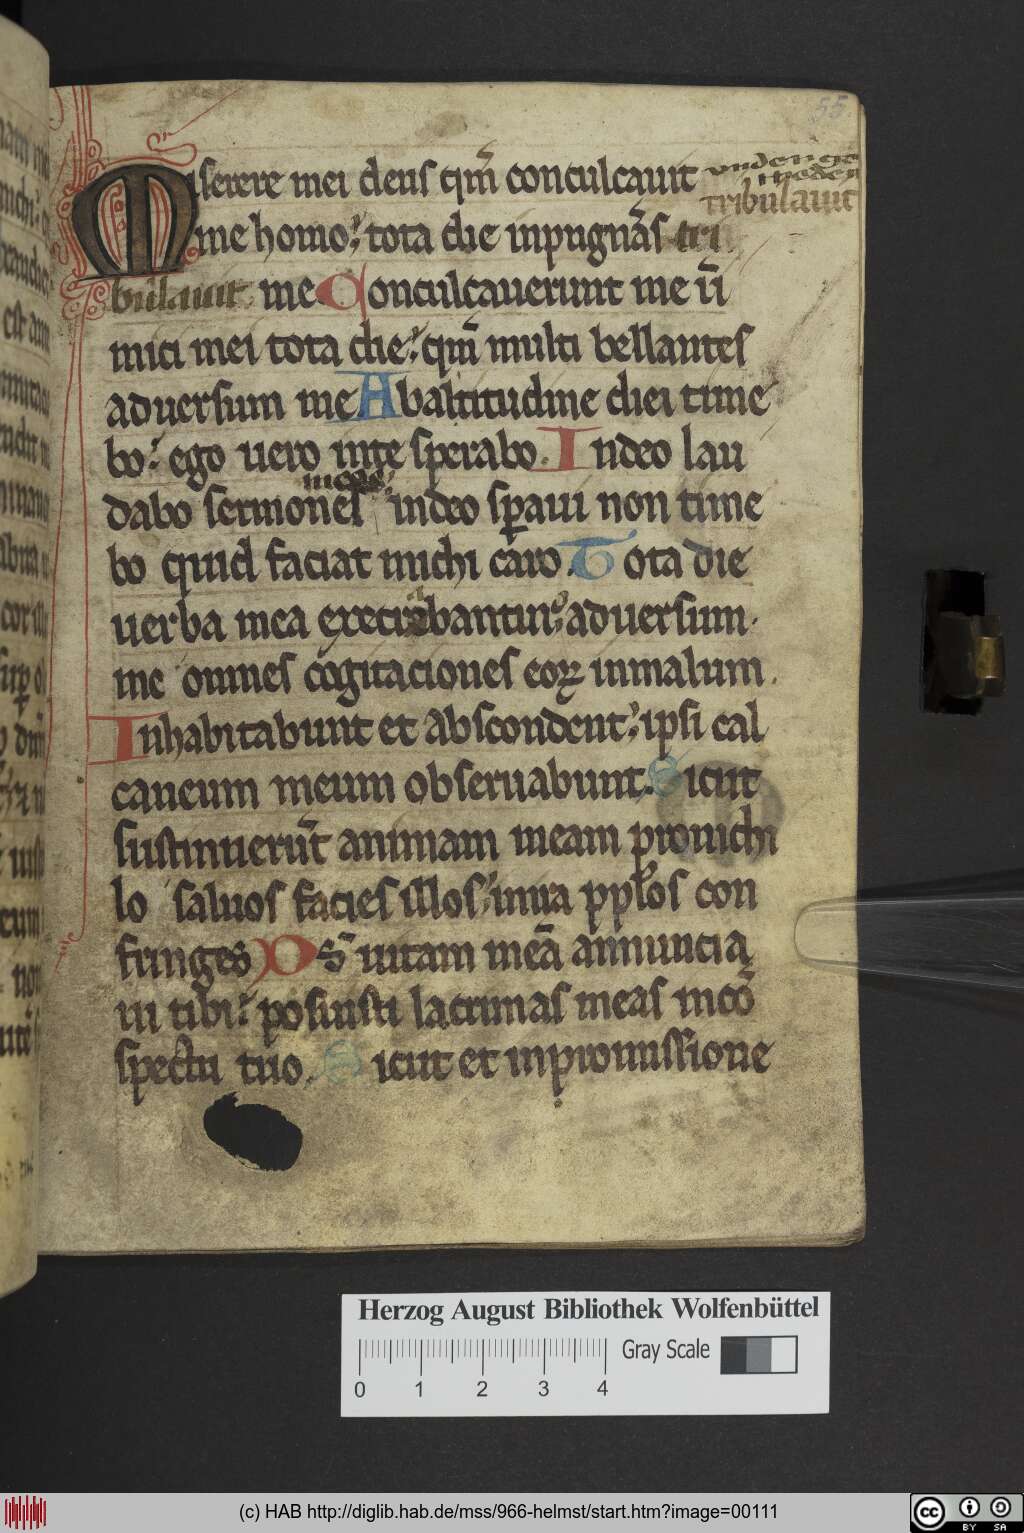 55
Miserere mei deus qm̄ conculcauit
tribulauit
me homo: tota die inpugnās tri
bulauit me Conculcauerunt me ini
mici mei tota die: qm̄ multi bellantes
aduersum me Abaltitudine diei time
bo: ego uero inte sperabo. Indeo lau
meos
dabo sermones indeo sꝑaui non time
bo quid faciat michi caro. Tota die
uerba mea execrabantur: aduersum
me omnes cogitaciones eoꝝ inmalum.
Inhabitabunt et abscondent: ipsi cal
caneum meum obseruabunt. Sicut
sustinuerūt animam meam pronichi
lo saluos facies illos: inira pplos con
fringes Ds̄ uitam meā annuncia
ui tibi: posuisti lacrimas meas incō
spectu tuo. Sicut et inpromissione
Herzog August Bibliothek Wolfenbüttel
Gray Scale
0 1 2 3 4
(c) HAB http://diglib.hab.de/mss/966-helmst/start.htm?image=00111
cc BY SA